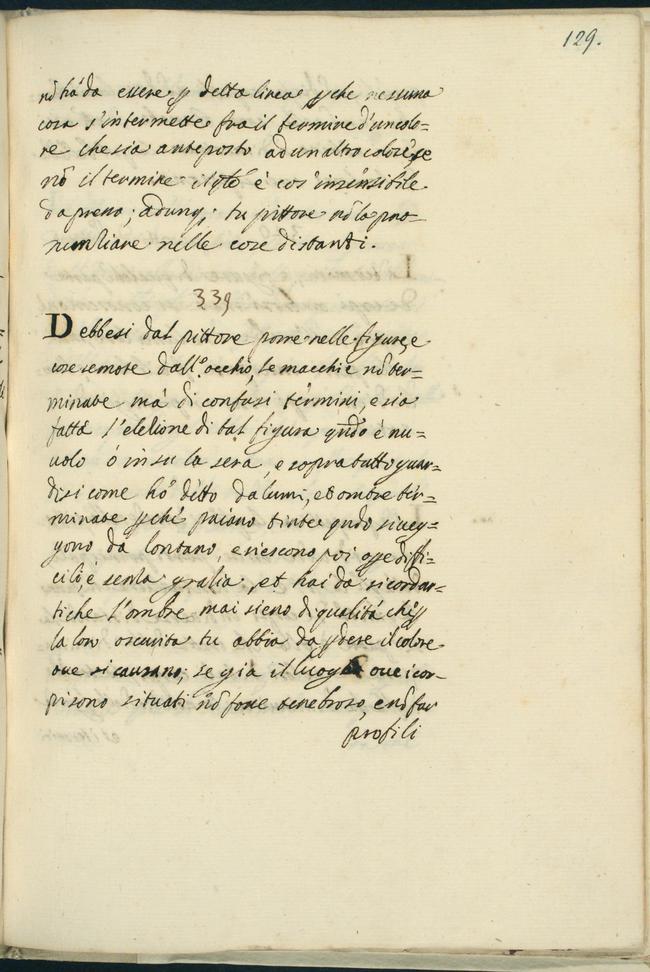 129.
nō hà da essere p detta linea pche nessuna
cosa s'intermette fra il termine d'un colo=
re che sia anteposto ad un altro colore se
nō il termine il qle è cosa insensibile
da presso; adunq; tu pittore nō la pro-
nuntiare nelle cose distanti.
339
Debbesi dal pittore porre nelle figure, e
cose remote dall'occhio, le macchie nō ter=
minate mà di confusi termini, e sia
fatta l'eletione di tal figura qndo è nu=
uolo ò in su la sera, e sopra tutto guar=
disi come hò ditto da lumi, et ombre ter=
minate pche paiano tinte qndo si ueg=
gono da lontano, e riescono poi ope diffi=
cili, e senza gratia, et hai da ricordar=
ti che l'ombre mai sieno di qualità che p
la loro oscurita tu abbia da pdere il colore
oue si causano; se gia il luogo oue i cor-
pi sono situati nō fosse tenebroso, e nō far
profili